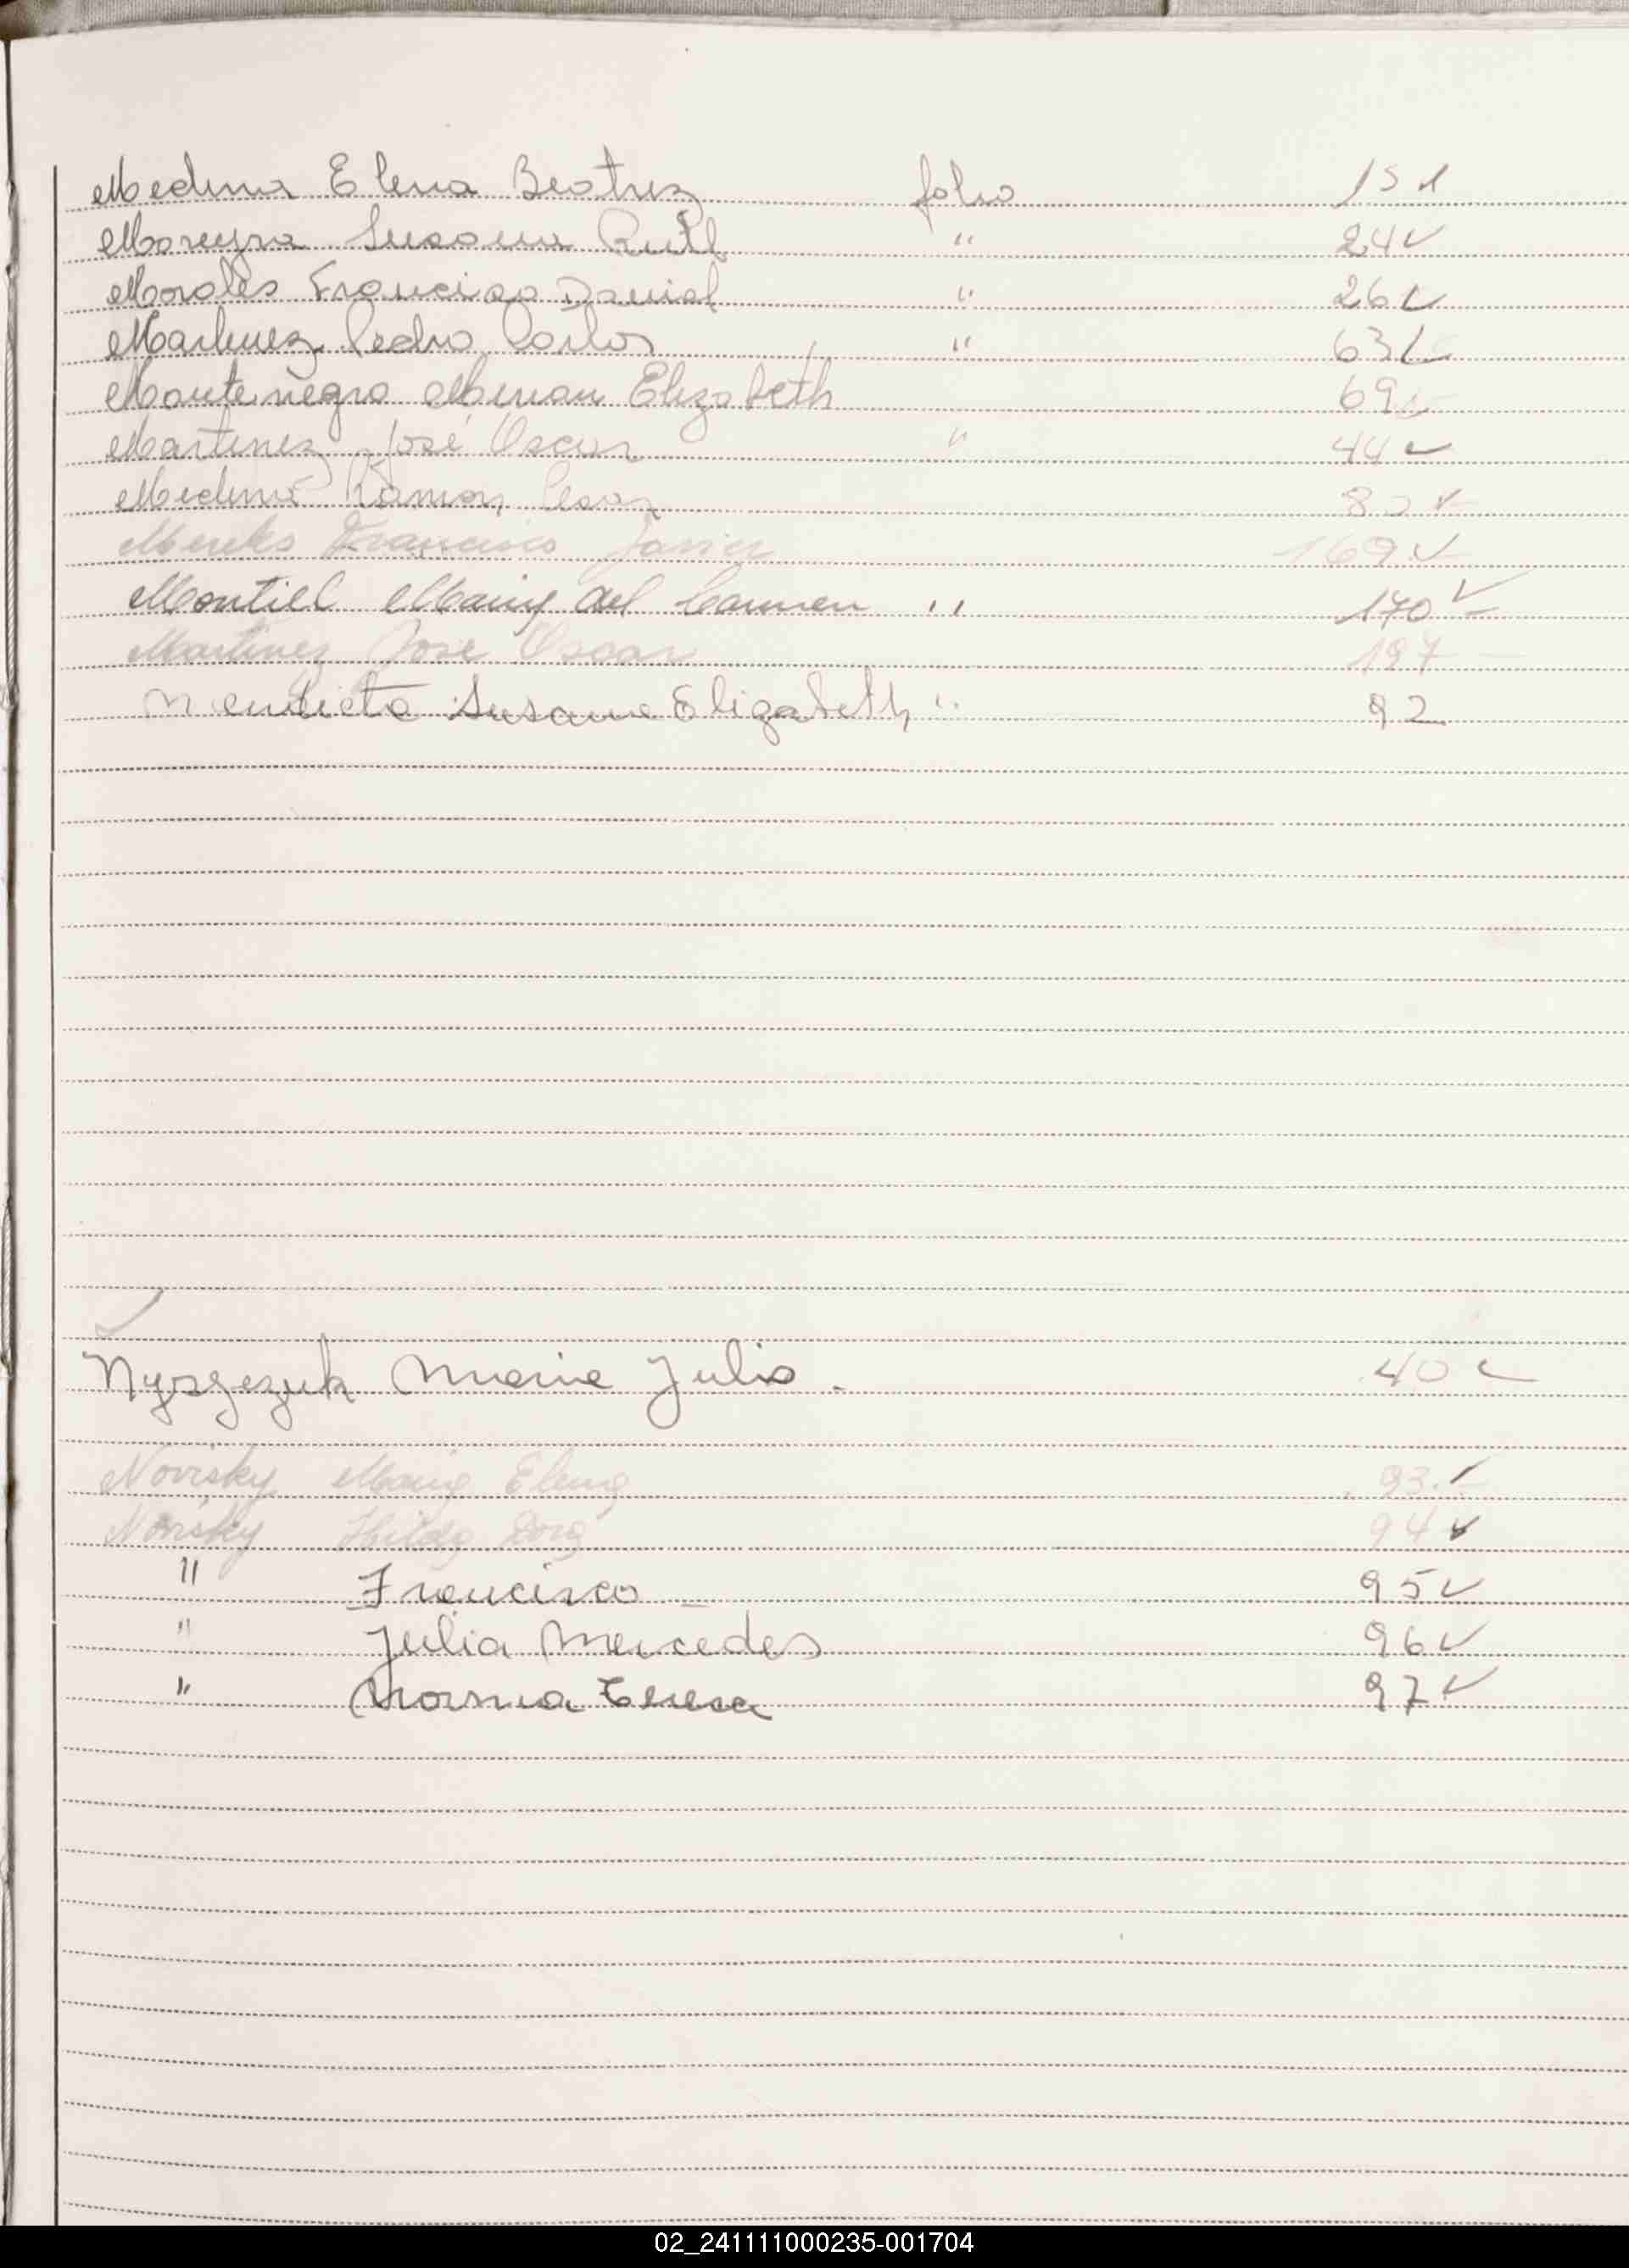 Medina Elena Beatriz folio 15 ✓
Moreyra Susana Ruth " 24 ✓
Morales Francisco Daniel " 26 ✓
Martinez Pedro Carlos " 63 ✓
Montenegro Mirian Elizabeth 69 ✓
Martinez José Oscar " 44 ✓
Medina Ramon Cesar ✓
Francisco Javier 169 ✓
Montiel Maria del Carmen " 170 ✓
Martinez José Oscar 197 -
Mendieta Susana Elizabeth " 92
✓
Nyszezuk Maria Julia. 40 ✓
Novisky Maria Elena 93. ✓
Novisky Hilda Dora 94 ✓
" Francisco - 95 ✓
" Julia Mercedes 96 ✓
" Norma Teresa 97 ✓
02_241111000235-001704